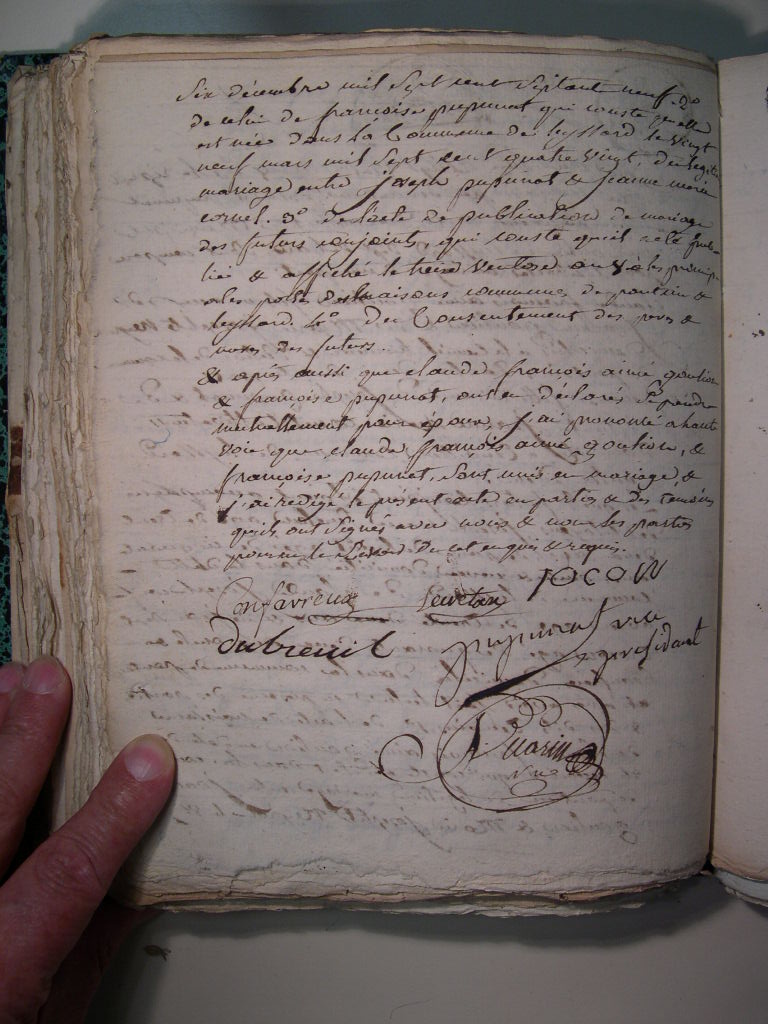 Six décembre mil Sept cent Septante neuf. 2o
de celui de françoise pupunat qui conste qu'elle
est née dans la Commune de leyssard le vingt
neuf mars mil Sept cent quatre vingt, du legitime
mariage entre joseph pupunat & jeanne marie
cornel. 3o de l'acte de publication de mariage
des futurs conjoints, qui conste qu'il a été pub-
lié & affiché le treize Ventose an X à les princip-
ales portes des maisons communes de &
leyssard. 4o Du Consentement des peres &
meres des futurs.
& après aussi que claude françois aimé goution
& françoise pupunat, ont en déclarés Se prendre
mutuellement pour époux, j'ai prononcé a haute
voix que claude françois aimé goution, &
françoise pupunat, Sont unis en mariage, &
j'ai redigé le present acte en parties & des temoins
qu'ils ont Signés avec nous & non les parties
pour ne le Savoir de ce enquis & requis.
JOCOW
Confavreux Secretaire
Dubreuil pupunat vice
president